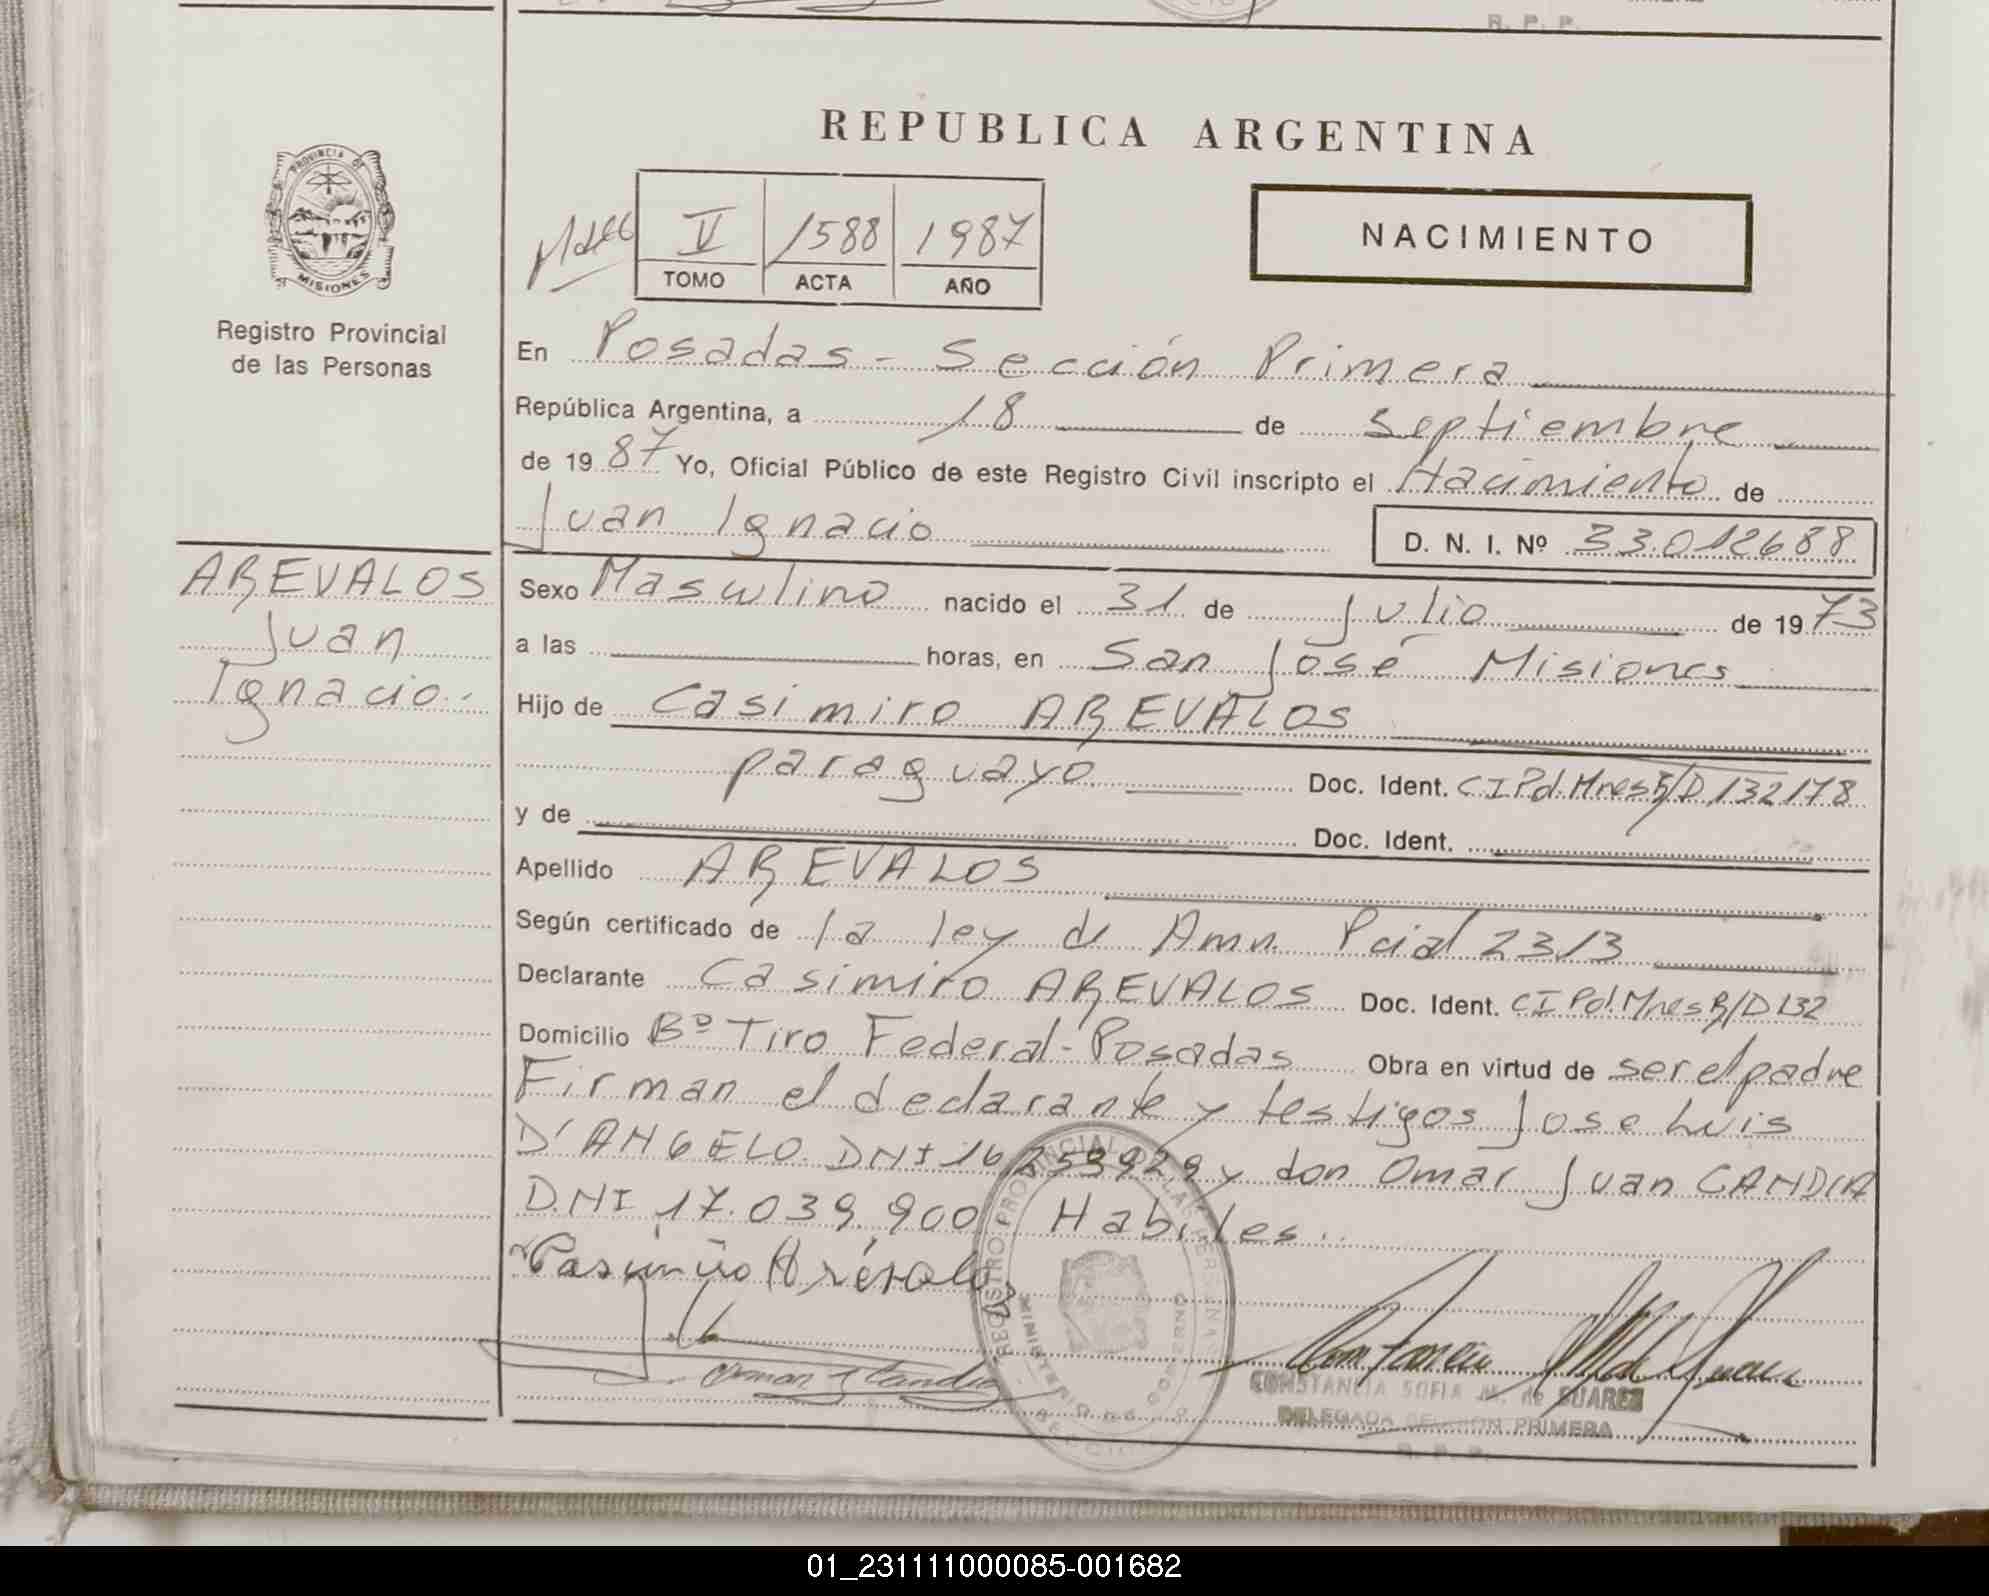 R. P. P.
REPUBLICA ARGENTINA
PROVINCIA DE
MISIONES
Registro Provincial
de las Personas
V 1588 1987
TOMO ACTA AÑO
NACIMIENTO
En Posadas - Sección Primera
República Argentina, a 18 de septiembre
de 19 87 Yo, Oficial Público de este Registro Civil inscripto el Nacimiento de
Juan Ignacio D. N. I. Nº 33.012688
AREVALOS
Juan
Ignacio.-
Sexo Masculino nacido el 31 de Julio de 19 73
a las horas, en San José Misiones
Hijo de Casimiro AREVALOS
paraguayo Doc. Ident. CI Pol. Mnes R/D 132178
y de Doc. Ident.
Apellido AREVALOS
Según certificado de la ley de Amn. Pcial 2313
Declarante Casimiro AREVALOS Doc. Ident. CI Pol. Mnes R/D 132
Domicilio Bº Tiro Federal - Posadas Obra en virtud de ser el padre
Firman el declarante y testigos Jose Luis
D'ANGELO DNI 16 253929 y don Omar Juan CANDIA
DNI 17.039.900 Habiles.
Casimiro Arévalos
REGISTRO PROVINCIAL DE LAS PERSONAS
MINISTERIO DE GOBIERNO
CONSTANCIA SOFIA M. de SUAREZ
DELEGADA SECCION PRIMERA
R. P. P.
01_231111000085-001682